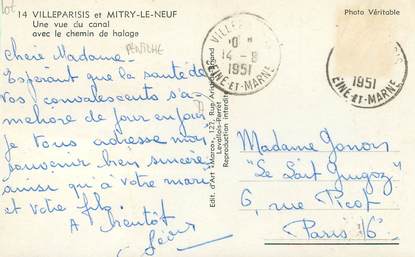 14 VILLEPARISIS et MITRY-LE-NEUF
Une vue du canal
avec le chemin de halage
PENICHE
Photo Véritable
VILLEPARISIS
14 - 8
1951
SEINE-ET-MARNE
1951
SEINE-ET-MARNE
Chère Madame
Espérant que la santé de
vos convalescents s'a-
méliore de jour en jour
je vous adresse mon
souvenir bien sincère
ainsi qu'à votre mari
et votre fils.
A bientôt
Edit. d'Art "Marco", 127, Rug
Levallois-Perret
Reproduction interdite
Madame
"Le Lait Guigoz"
6, rue Picot
Paris 16e